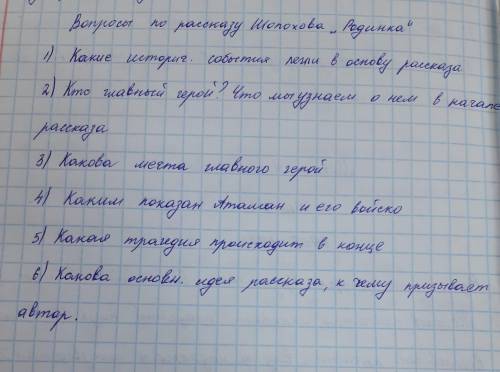 Вопросы по рассказу Шолохова „Родинка"
1) Какие историч. события легли в основу рассказа
2) Кто главный герой? Что мы узнаем о нем в начале
рассказа
3) Какова мечта главного герой
4) Каким показан Атаман и его войско
5) Какая трагедия происходит в конце
6) Какова основн. идея рассказа, к чему призывает
автор.